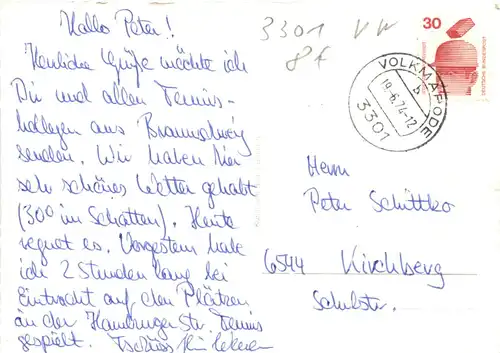 Hallo Peter!
Herzliche Grüße möchte ich
Dir und allen Tennis-
kollegen aus Braunschweig
senden. Wir haben hier
sehr schönes Wetter gehabt
(30° im Schatten). Heute
regnet es. Vorgestern habe
ich 2 Stunden lang bei
Eintracht auf den Plätzen
an der Hamburger Str. Tennis
gespielt. Tschüss
3301 VW
8f
30
DEUTSCHE BUNDESPOST
VOLKMARODE
b
19.-6.74-12
3301
Herrn
Peter Schittko
6544 Kirchberg
Schulstr.